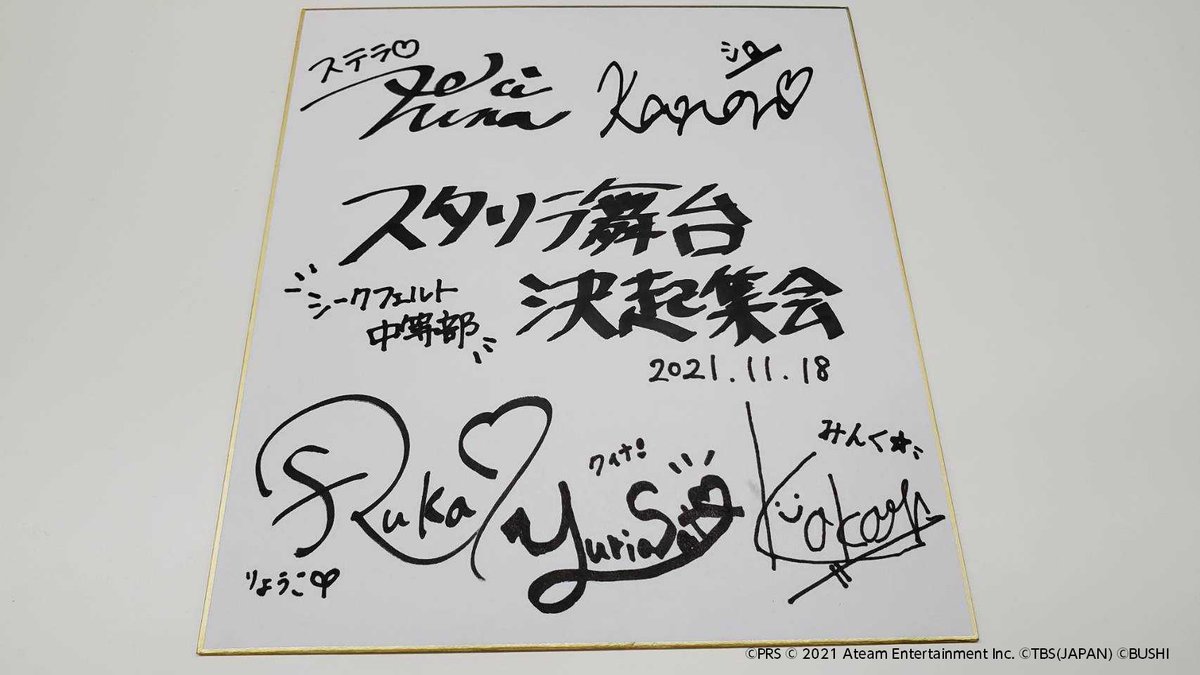 ステラ♡
シロ
Kanon♡
スタリラ舞台
シークフェルト
中等部
決起集会
2021.11.18
Ruka
りょうこ♡
クイナ!
Yuria
みんく☆
©PRS © 2021 Ateam Entertainment Inc. ©TBS(JAPAN) ©BUSHI